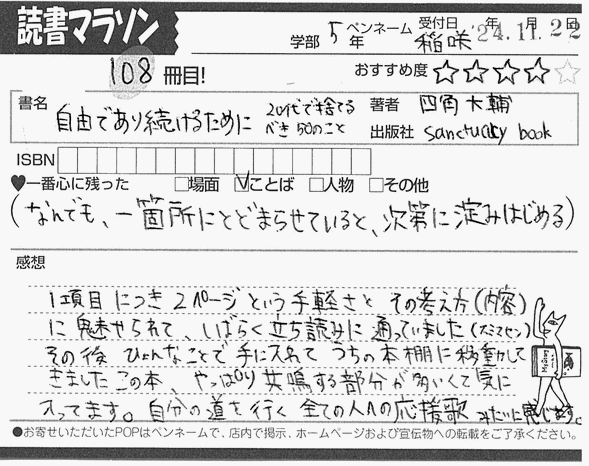 読書マラソン
学部 5年 ペンネーム 稲咲 受付日 '24年 11月 22日
108 冊目!
おすすめ度 ☆☆☆☆☆
書名 自由であり続けるために 20代で捨てるべき50のこと
著者 四角大輔
出版社 sanctuary book
ISBN
♥一番心に残った □場面 ☑ことば □人物 □その他
(なんでも、一箇所にとどまらせていると、次第に淀みはじめる)
感想
1項目につき2ページという手軽さと その考え方(内容)
に魅せられて、しばらく立ち読みに通っていました(スミマセン)
その後 ひょんなことで手に入れて うちの本棚に移動して
きましたこの本、やっぱり共鳴する部分が多いくて気に
入ってます。自分の道を行く 全ての人への応援歌 みたいに感じます。
●お寄せいただいたPOPはペンネームで、店内で掲示、ホームページおよび宣伝物への転載をご了承ください。